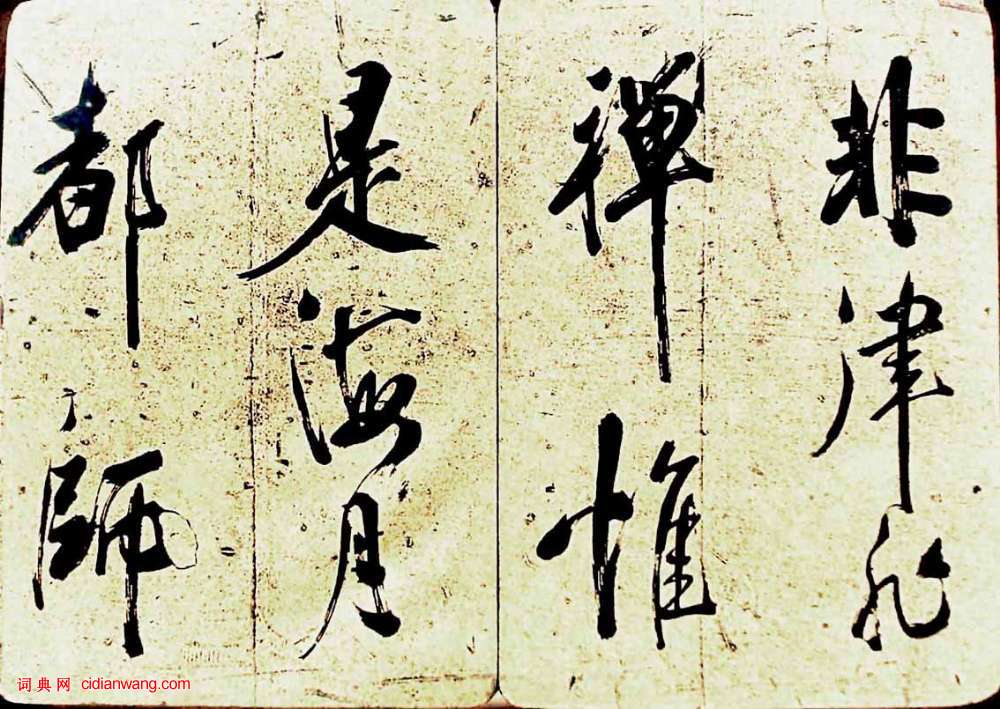 非律非
禪惟
是海月
都師
词典网 cidianwang.com